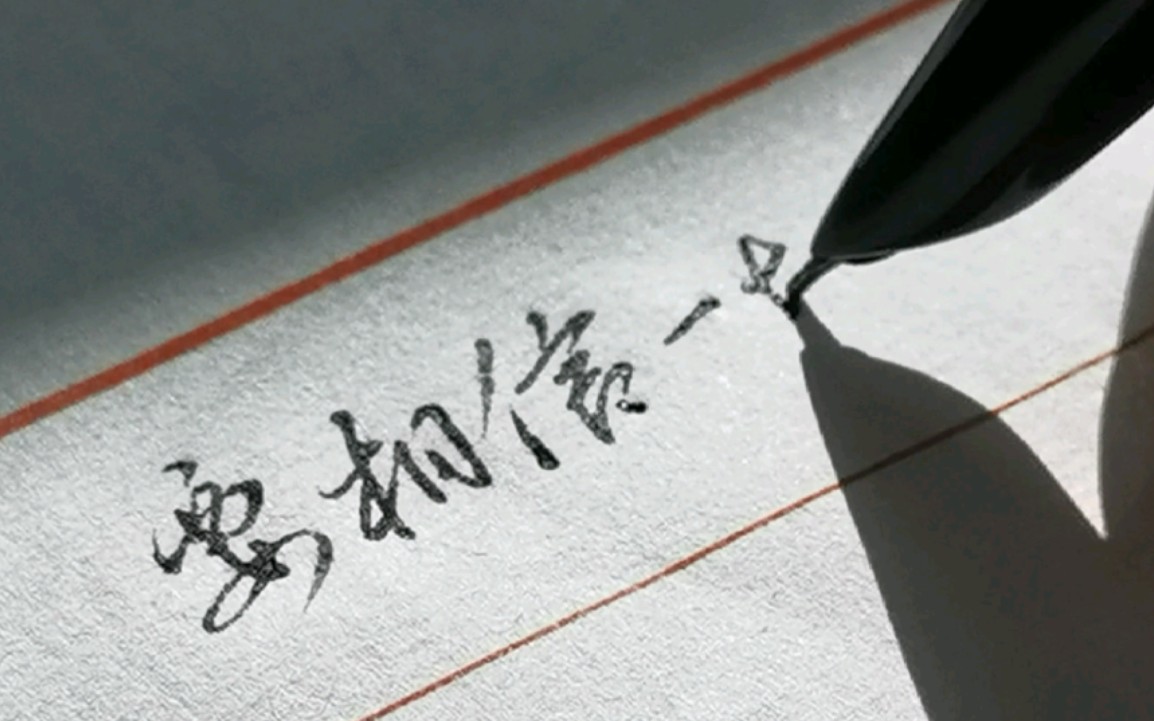 要相信一